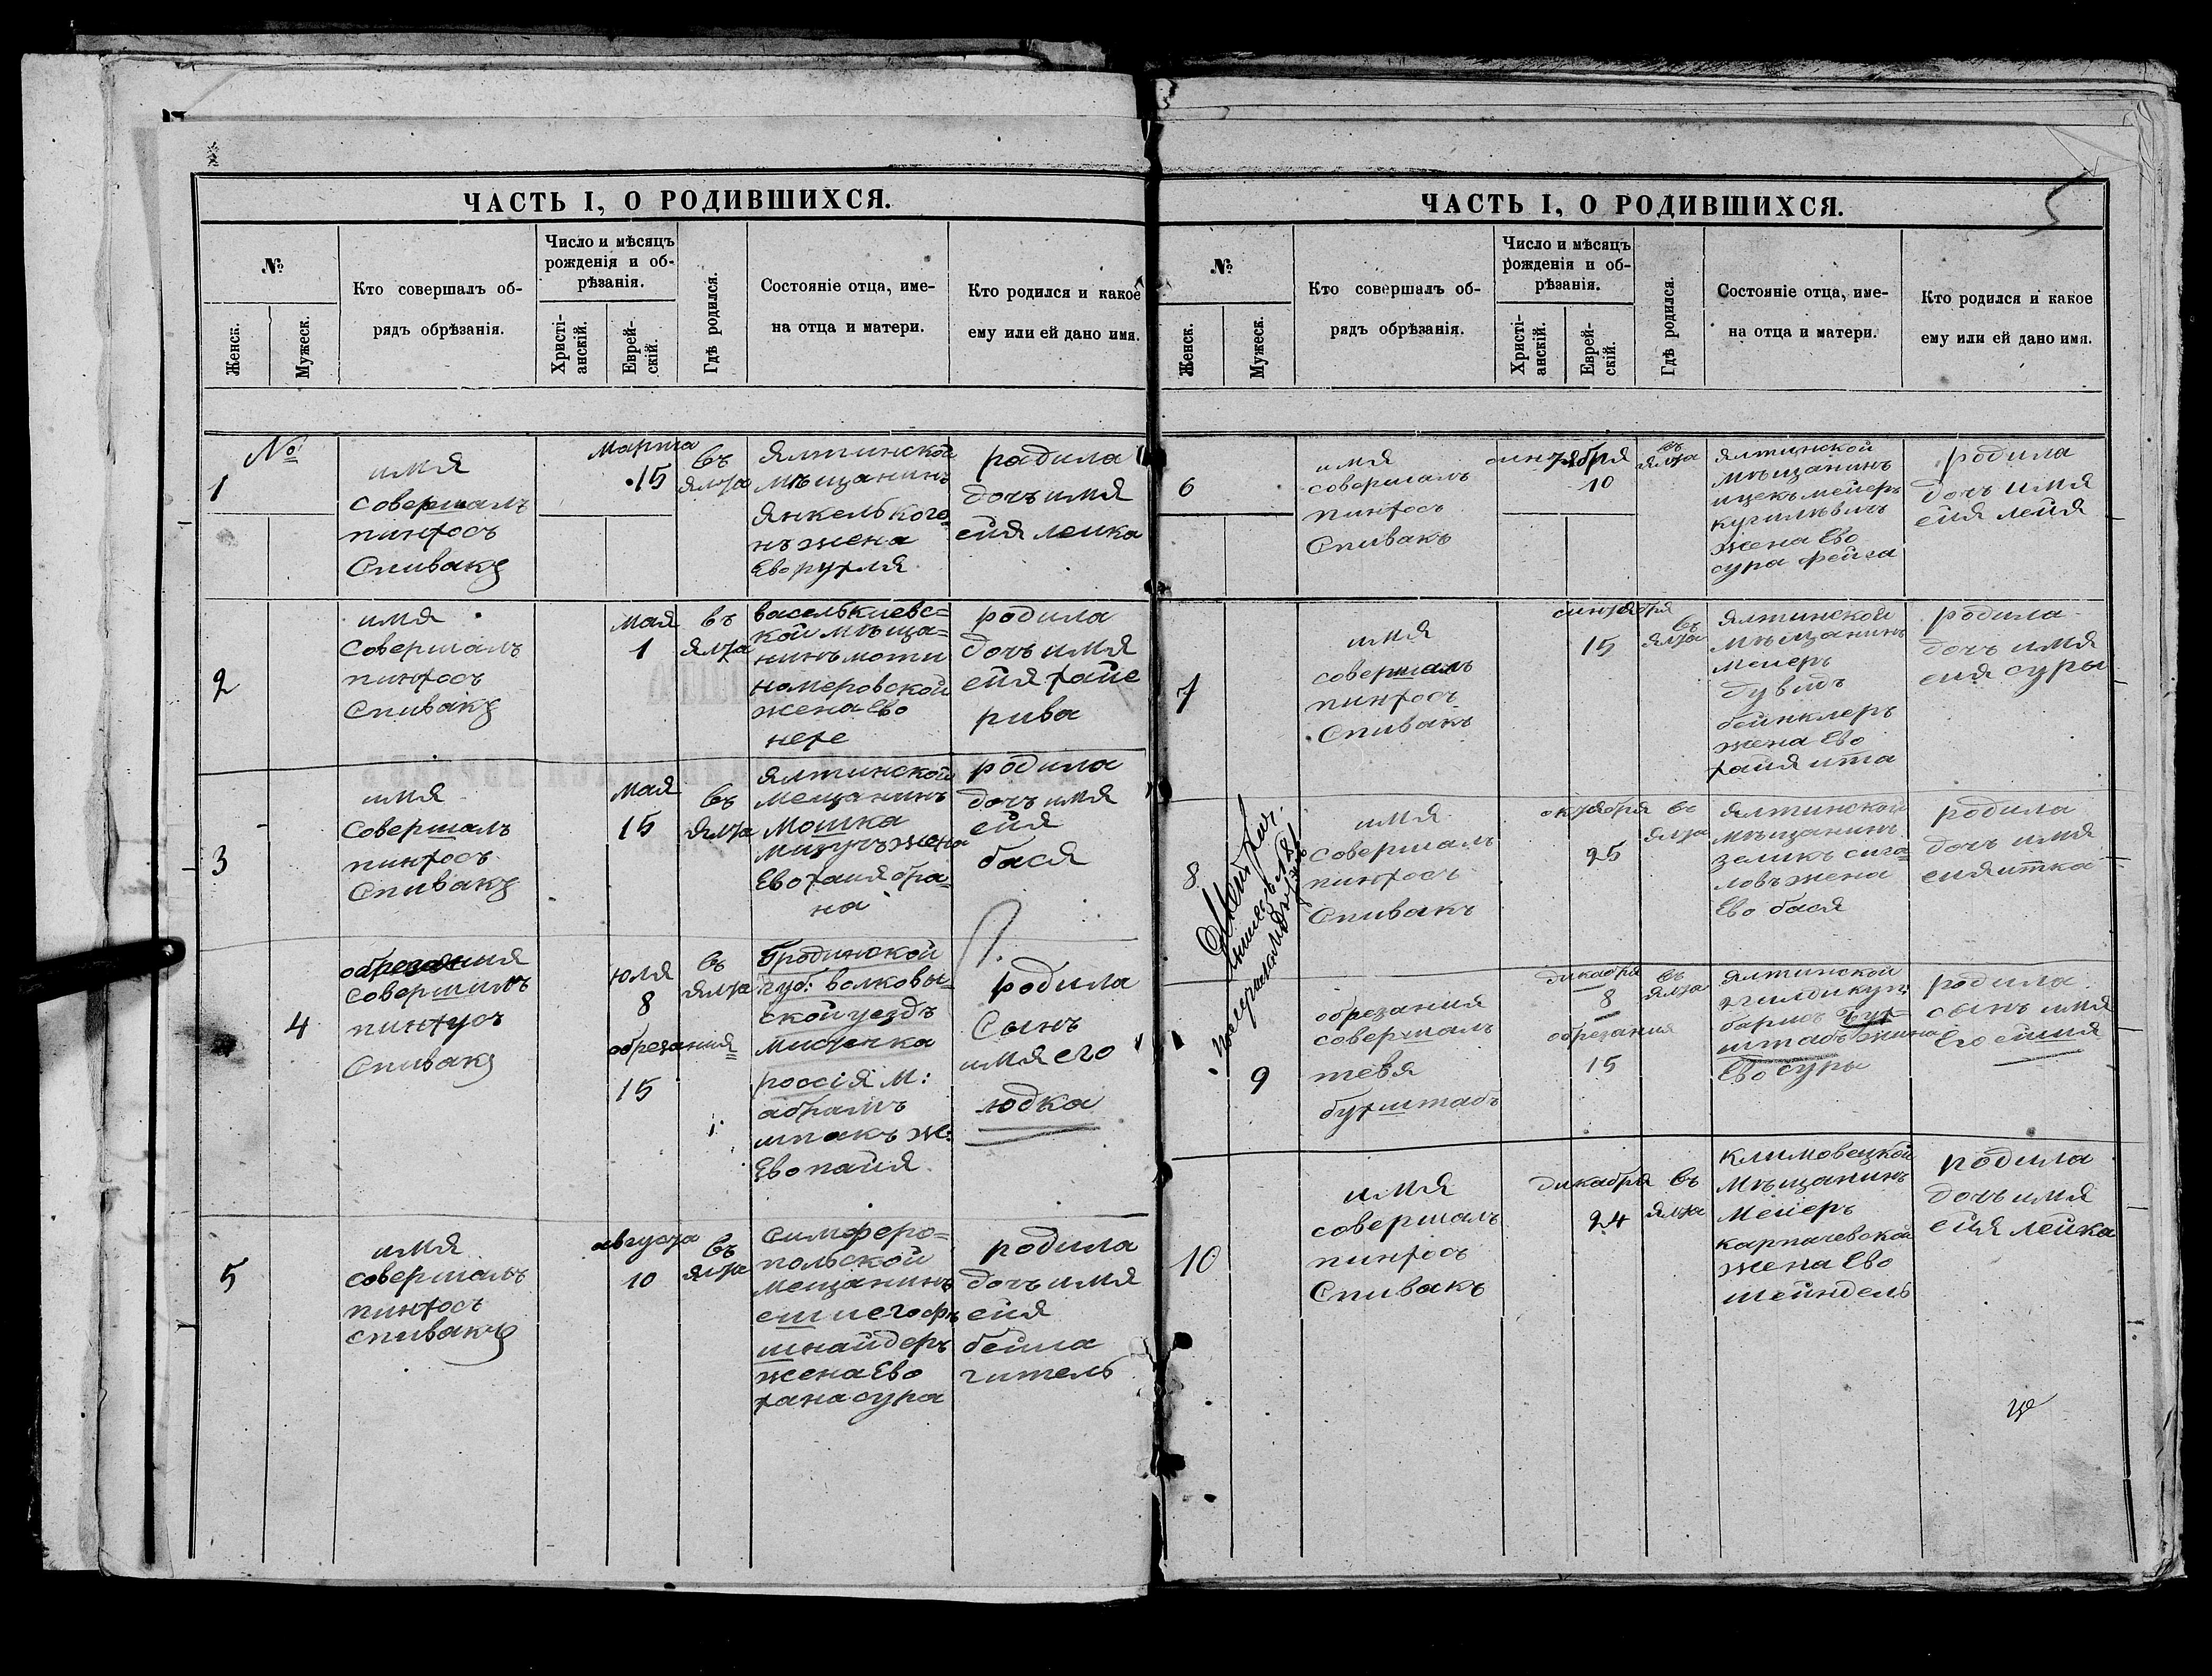 ЧАСТЬ I, О РОДИВШИХСЯ.
№
Женск.
Мужеск.
Кто совершалъ об-
рядъ обрѣзанія.
Число и мѣсяцъ
рожденія и об-
рѣзанія.
Христі-
анскій.
Еврей-
скій.
Гдѣ родился.
Состояніе отца, име-
на отца и матери.
Кто родился и какое
ему или ей дано имя.
№
1
имя
совершалъ
пинхосъ
Спивакъ
марта
15
въ
ялта
Ялтинской
мѣщанинъ
Янкель коге-
нъ жена
Ево рухля
радила
дочь имя
ейя леика
2
имя
Совершалъ
пинхосъ
Спивакъ
мая
1
въ
ялта
васелькиевс=
кой мѣща=
нинъ моти
намеровской
жена Ево
нехе
родила
дочь имя
ейя хайе
рива
3
имя
Совершалъ
пинхосъ
Спивакъ
мая
15
въ
ялта
ялтинской
мещанинъ
Мошка
жена
Ево хаия бра-
на
родила
дочь имя
ейя
бася
4
обрезания
совершилъ
пинхусъ
Спивакъ
юля
8
обрезания=
15
въ
ялта
Гродинской
губ: волковы-
ской уездъ
Мистечка
россія м:
абрамъ
шпакъ ж:
Ево паия
родила
Сынъ
имя его
юдка
5
имя
совершалъ
пинхосъ
спивакъ
августа
10
въ
ялта
Симферо=
польской
мещанинъ
шнайдеръ
жена Ево
хана сура
родила
дочь имя
ейя
бейла
гитель
ЧАСТЬ I, О РОДИВШИХСЯ.
5
№
Женск.
Мужеск.
Кто совершалъ об-
рядъ обрѣзанія.
Число и мѣсяцъ
рожденія и об-
рѣзанія.
Христі-
анскій.
Еврей-
скій.
Гдѣ родился.
Состояніе отца, име-
на отца и матери.
Кто родился и какое
ему или ей дано имя.
6
имя
совершалъ
пинхосъ
Спивакъ
синтября
10
въ
ялта
ялтинской
мѣщанинъ
ицекъ мейеръ
жена Ево
сура фейга
родила
дочь имя
ейя лейя
7
имя
совершалъ
пинхосъ
Спивакъ
синтября
15
въ
ялта
ялтинской
мѣщанинъ
мейеръ
дувидъ
бейнклеръ
жена Ево
хаия ита
родила
дочь имя
ейя суры
8
имя
Совершалъ
пинхосъ
Спивакъ
октября
25
въ
ялта
ялтинской
мѣщанинъ
зеликъ сига-
ловъ жена
Ево бася
родила
дочь имя
ейя итка
9
обрезания
совершалъ
тевя
бухштабъ
дикабря
8
обрезания
15
въ
ялта
ялтинской
2 гилди куп:
барисъ Бух=
штабъ жина
Ево суры
родила
сынъ имя
Его
10
имя
совершалъ
пинхосъ
Спивакъ
дикабря
24
въ
ялта
климовецкой
мѣщанинъ
мейеръ
карпачевской
жена Ево
шейндель
родила
дочь имя
ейя лейка